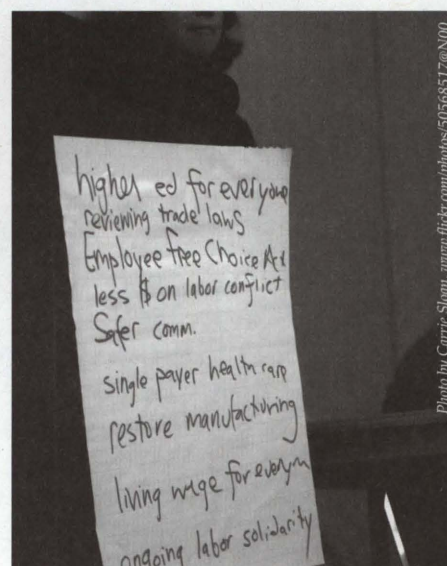 higher ed for everyone
reviewing trade laws
Employee Free Choice Act
less $ on labor conflict
Safer comm.
single payer health care
restore manufacturing
living wage for everyone
ongoing labor solidarity
Photo by Carrie Sloan, www.flickr.com/photos/50568517@N00